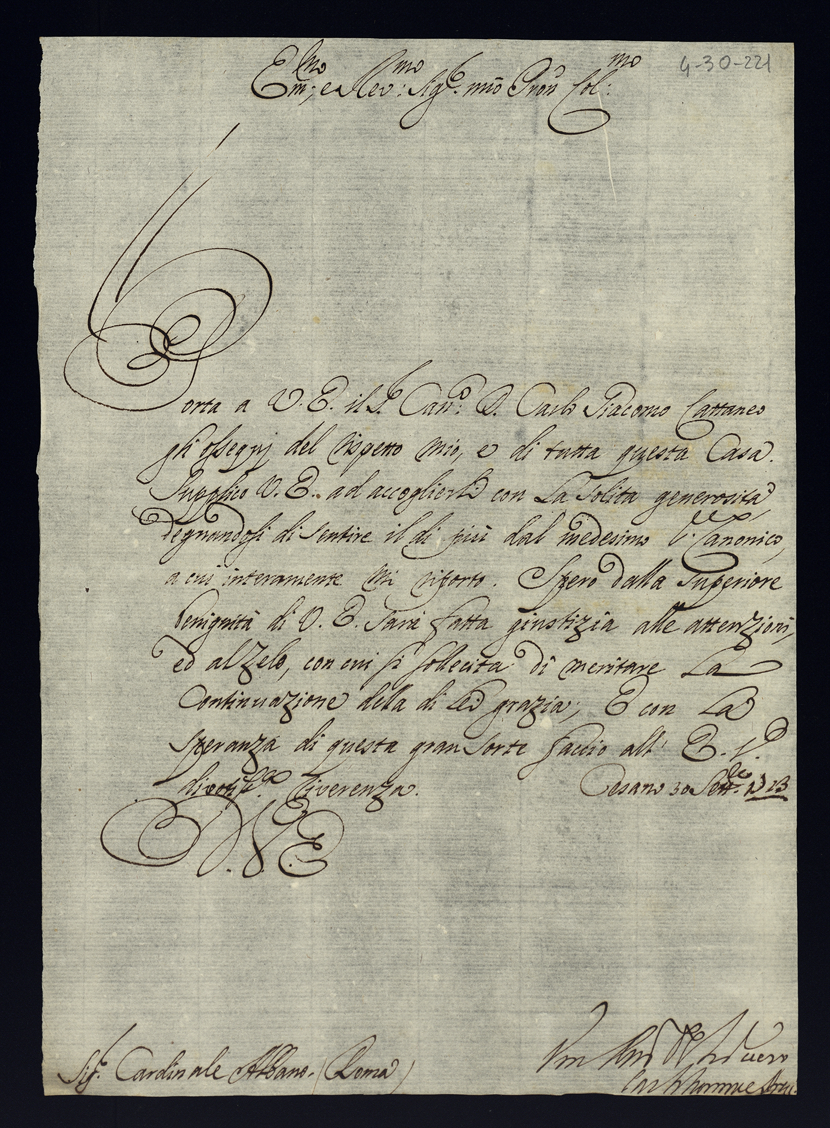 4-30-221
Em:mo e Rev:mo Sig.r mio Pron Col:mo
Porta a V. E. il S.r Can.co D. Carlo Giacomo Cattaneo
gli ossequj del rispetto mio, e di tutta questa Casa.
Supplico V. E. ad accoglierli con la solita generosità
degnandosi di sentire il di più dal medesimo S.r Canonico,
a cui interamente mi riporto. Spero dalla Superiore
benignità di V. E. sarà fatta giustizia alle attenzioni,
ed al Zelo, con cui si sollecita di meritare La
Continuazione della di Lei grazia; E con La
speranza di questa gran sorte faccio all' E. V.
divotis.ma riverenza. Cesano 30 Sett.bre 1713
D. V. E.
Sig.r Cardinale Albano. (Roma)